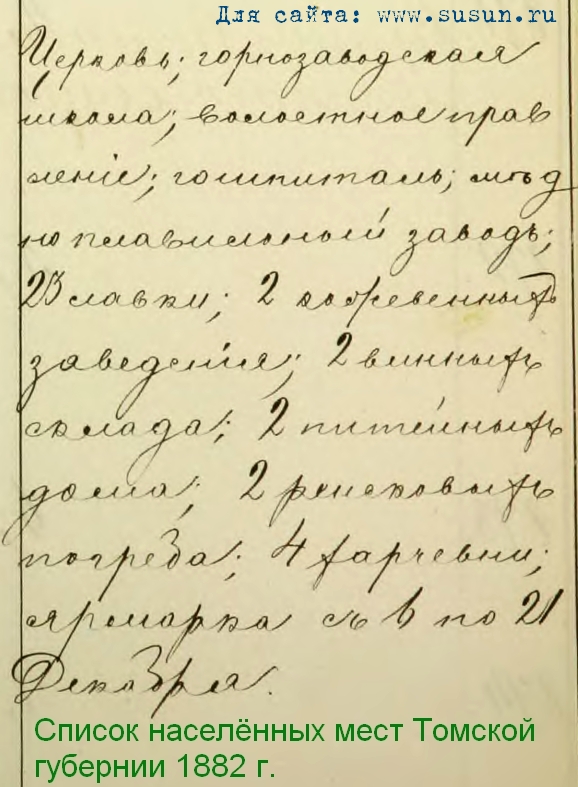 Для сайта: www.susun.ru
Церковь; горнозаводская
школа; волостное прав
ленiе; гошпиталь; мѣд
ноплавильный заводъ;
23 лавки; 2 кожевенныхъ
заведенiя; 2 винныхъ
склада; 2 питейныхъ
дома; 2 ренсковыхъ
погреба; 4 харчевни;
ярмарка съ 6 по 21
Декабря.
Список населённых мест Томской
губернии 1882 г.